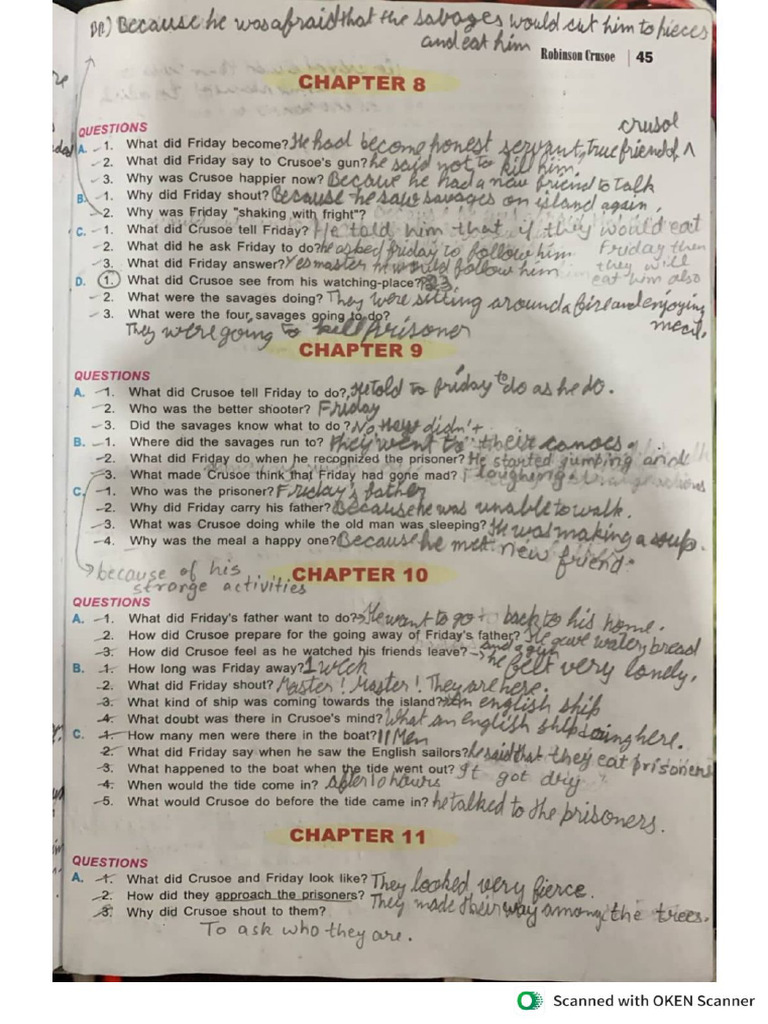 B2) Because he was afraid that the savages would cut him to pieces
and eat him
Robinson Crusoe | 45
CHAPTER 8
QUESTIONS
crusol
A. 1. What did Friday become? He had become honest servant, true friend of ^
2. What did Friday say to Crusoe's gun? he said not to kill him.
3. Why was Crusoe happier now? Because he had a new friend to talk
B. 1. Why did Friday shout? Because he saw savages on island again,
2. Why was Friday "shaking with fright"?
C. 1. What did Crusoe tell Friday? He told him that if they would eat
Friday then
2. What did he ask Friday to do? he asked friday to follow him
they will
3. What did Friday answer? Yes master he would follow him
eat him also
D. 1. What did Crusoe see from his watching-place? 23
2. What were the savages doing? They were sitting around a fire and enjoying
meal.
3. What were the four savages going to do?
They were going to kill prisoner
CHAPTER 9
QUESTIONS
A. 1. What did Crusoe tell Friday to do? He told to friday to do as he do.
2. Who was the better shooter? Friday
3. Did the savages know what to do? No they didn't
B. 1. Where did the savages run to? they went to their canoes.
2. What did Friday do when he recognized the prisoner? He started jumping and
3. What made Crusoe think that Friday had gone mad? laughing
C. 1. Who was the prisoner? Friday's father
2. Why did Friday carry his father? Because he was unable to walk.
3. What was Crusoe doing while the old man was sleeping? He was making a soup.
4. Why was the meal a happy one? Because he met new friend.
because of his
strange activities
CHAPTER 10
QUESTIONS
A. 1. What did Friday's father want to do? He want to go back to his home.
2. How did Crusoe prepare for the going away of Friday's father? He gave water, bread
and a gun
3. How did Crusoe feel as he watched his friends leave? he felt very lonely.
B. 1. How long was Friday away? 1 week
2. What did Friday shout? Master! Master! They are here.
3. What kind of ship was coming towards the island? an english ship
4. What doubt was there in Crusoe's mind? What an english ship doing here.
C. 1. How many men were there in the boat? 11 Men
2. What did Friday say when he saw the English sailors? he said that they eat prisoners
3. What happened to the boat when the tide went out? It got dry
4. When would the tide come in? after 10 hours
5. What would Crusoe do before the tide came in? he talked to the prisoners.
CHAPTER 11
QUESTIONS
A. 1. What did Crusoe and Friday look like? They looked very fierce.
2. How did they approach the prisoners? They made their way among the trees.
3. Why did Crusoe shout to them?
To ask who they are.
Scanned with OKEN Scanner